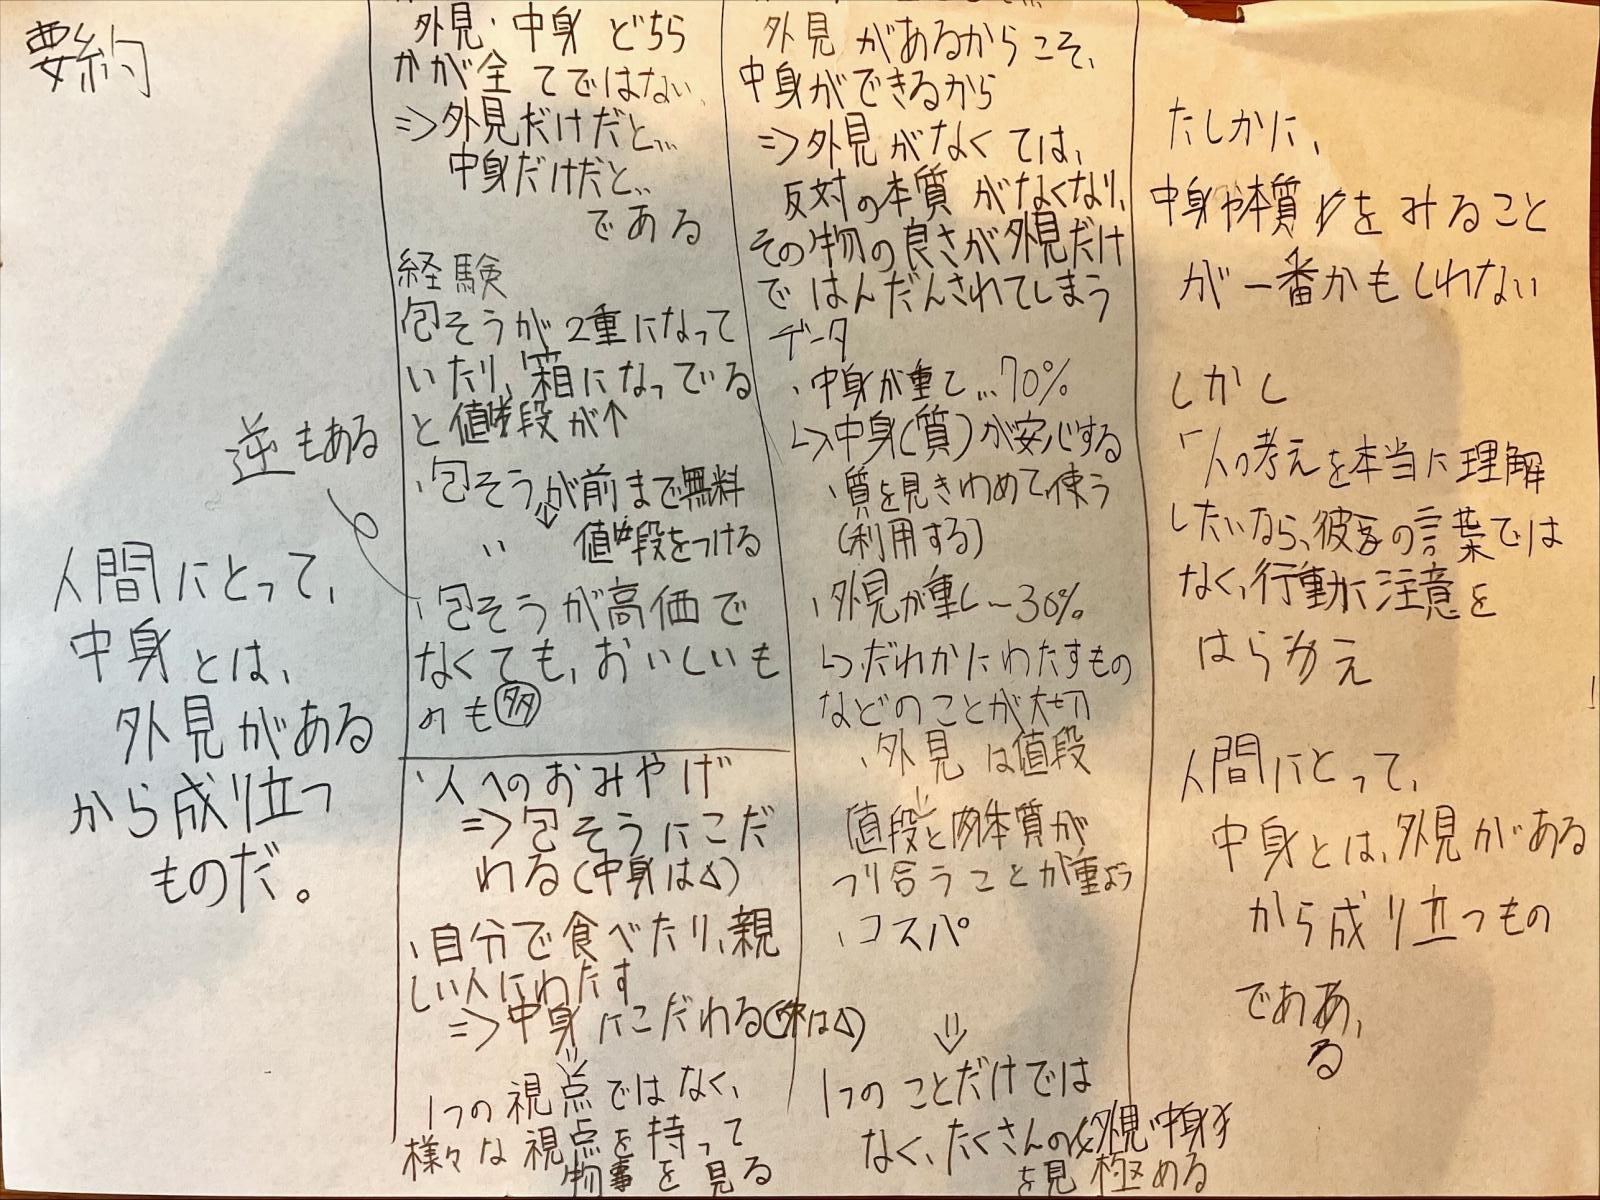 要約
逆もある
人間にとって、
中身とは、
外見がある
から成り立つ
ものだ。
外見・中身 どちら
かが全てではない、
=>外見だけだと…
中身だけだと…
である
経験
包そうが2重になって
いたり、箱になっている
と値段が↑
・包そうが前まで無料
↓
〃 値段をつける
・包そうが高価で
なくても、おいしいも
のも多
・人へのおみやげ
=>包そうにこだ
わる(中身は△)
・自分で食べたり、親
しい人にわたす
=>中身にこだわる(外は△)
1つの視点ではなく、
様々な視点を持って
物事を見る
外見があるからこそ、
中身ができるから
=>外見がなくては、
反対の本質がなくなり、
その物の良さが外見だけ
ではんだんされてしまう
データ
・中身が重し…70%
↳中身(質)が安心する
・質を見きわめて使う
(利用する)
・外見が重し…30%
↳だれかにわたすもの
などのことが大切
・外見は値段
値段と本質が
つり合うことが重よう
・コスパ
1つのことだけでは
なく、たくさんの外見・中身
を見極める
たしかに、
中身や本質をみること
が一番かもしれない
しかし
「人の考えを本当に理解
したいなら、彼の言葉では
なく、行動に注意を
はらえ
人間にとって、
中身とは、外見がある
から成り立つもの
である、